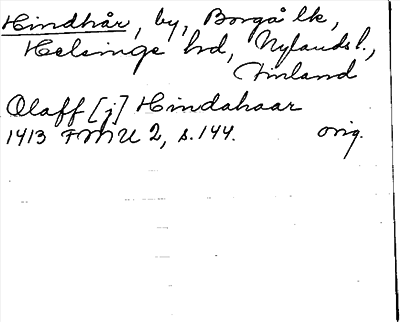 Hindhår, by, Borgå lk,
Helsinge hrd, Nylands l.,
Finland
Olaff [j] Hindahaar
1413 FMU 2, s. 144. orig.